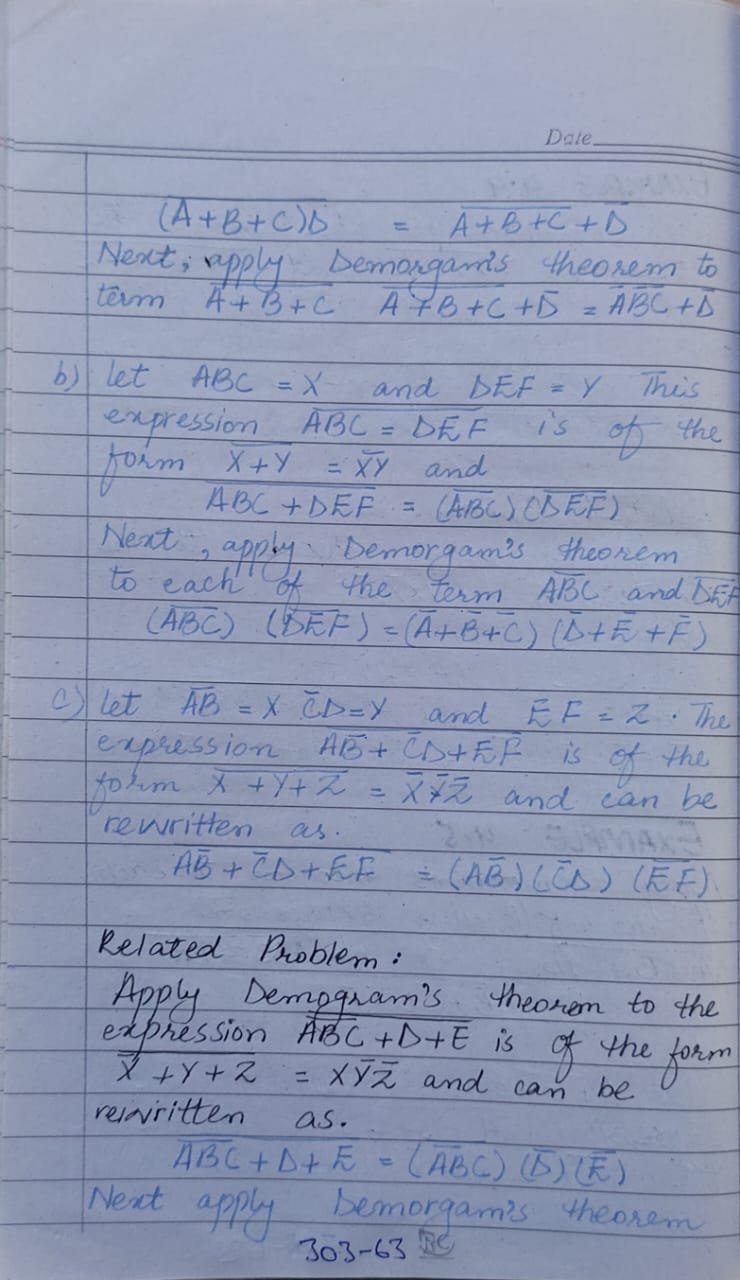 Date
(A+B+C)D̅ = A̅+̅B̅+̅C̅ + D̅
Next, apply Demorgam's theorem to
term A̅+̅B̅+̅C̅ A̅+̅B̅+̅C̅ + D̅ = A̅B̅C̅ + D̅
b) let ABC = X and DEF = Y This
expression A̅B̅C̅ = D̅E̅F̅ is of the
form X̅+̅Y̅ = X̅Y̅ and
A̅B̅C̅ ̅+̅ ̅D̅E̅F̅ = (A̅B̅C̅) (D̅E̅F̅)
Next, apply Demorgam's theorem
to each of the term A̅B̅C̅ and D̅E̅F̅
(A̅B̅C̅) (D̅E̅F̅) = (A̅+B̅+C̅) (D̅+E̅+F̅)
c) let AB̅ = X C̅D=Y and E̅F = Z. The
expression AB̅ + C̅D+E̅F is of the
form X̅ ̅+̅Y̅+̅Z̅ = X̅Y̅Z̅ and can be
rewritten as.
A̅B̅ ̅+̅ ̅C̅D̅+̅E̅F̅ = (AB̅) (C̅D) (E̅F)
Related Problem:
Apply Demogram's theorem to the
expression A̅B̅C̅ ̅+̅D̅+̅E̅ is of the form
X̅ ̅+̅Y̅+̅Z̅ = XY̅Z̅ and can be
rewritten as.
A̅B̅C̅+̅D̅+̅E̅ = (A̅B̅C̅) (D̅) (E̅)
Next apply Demorgam's theorem
303-63 RC